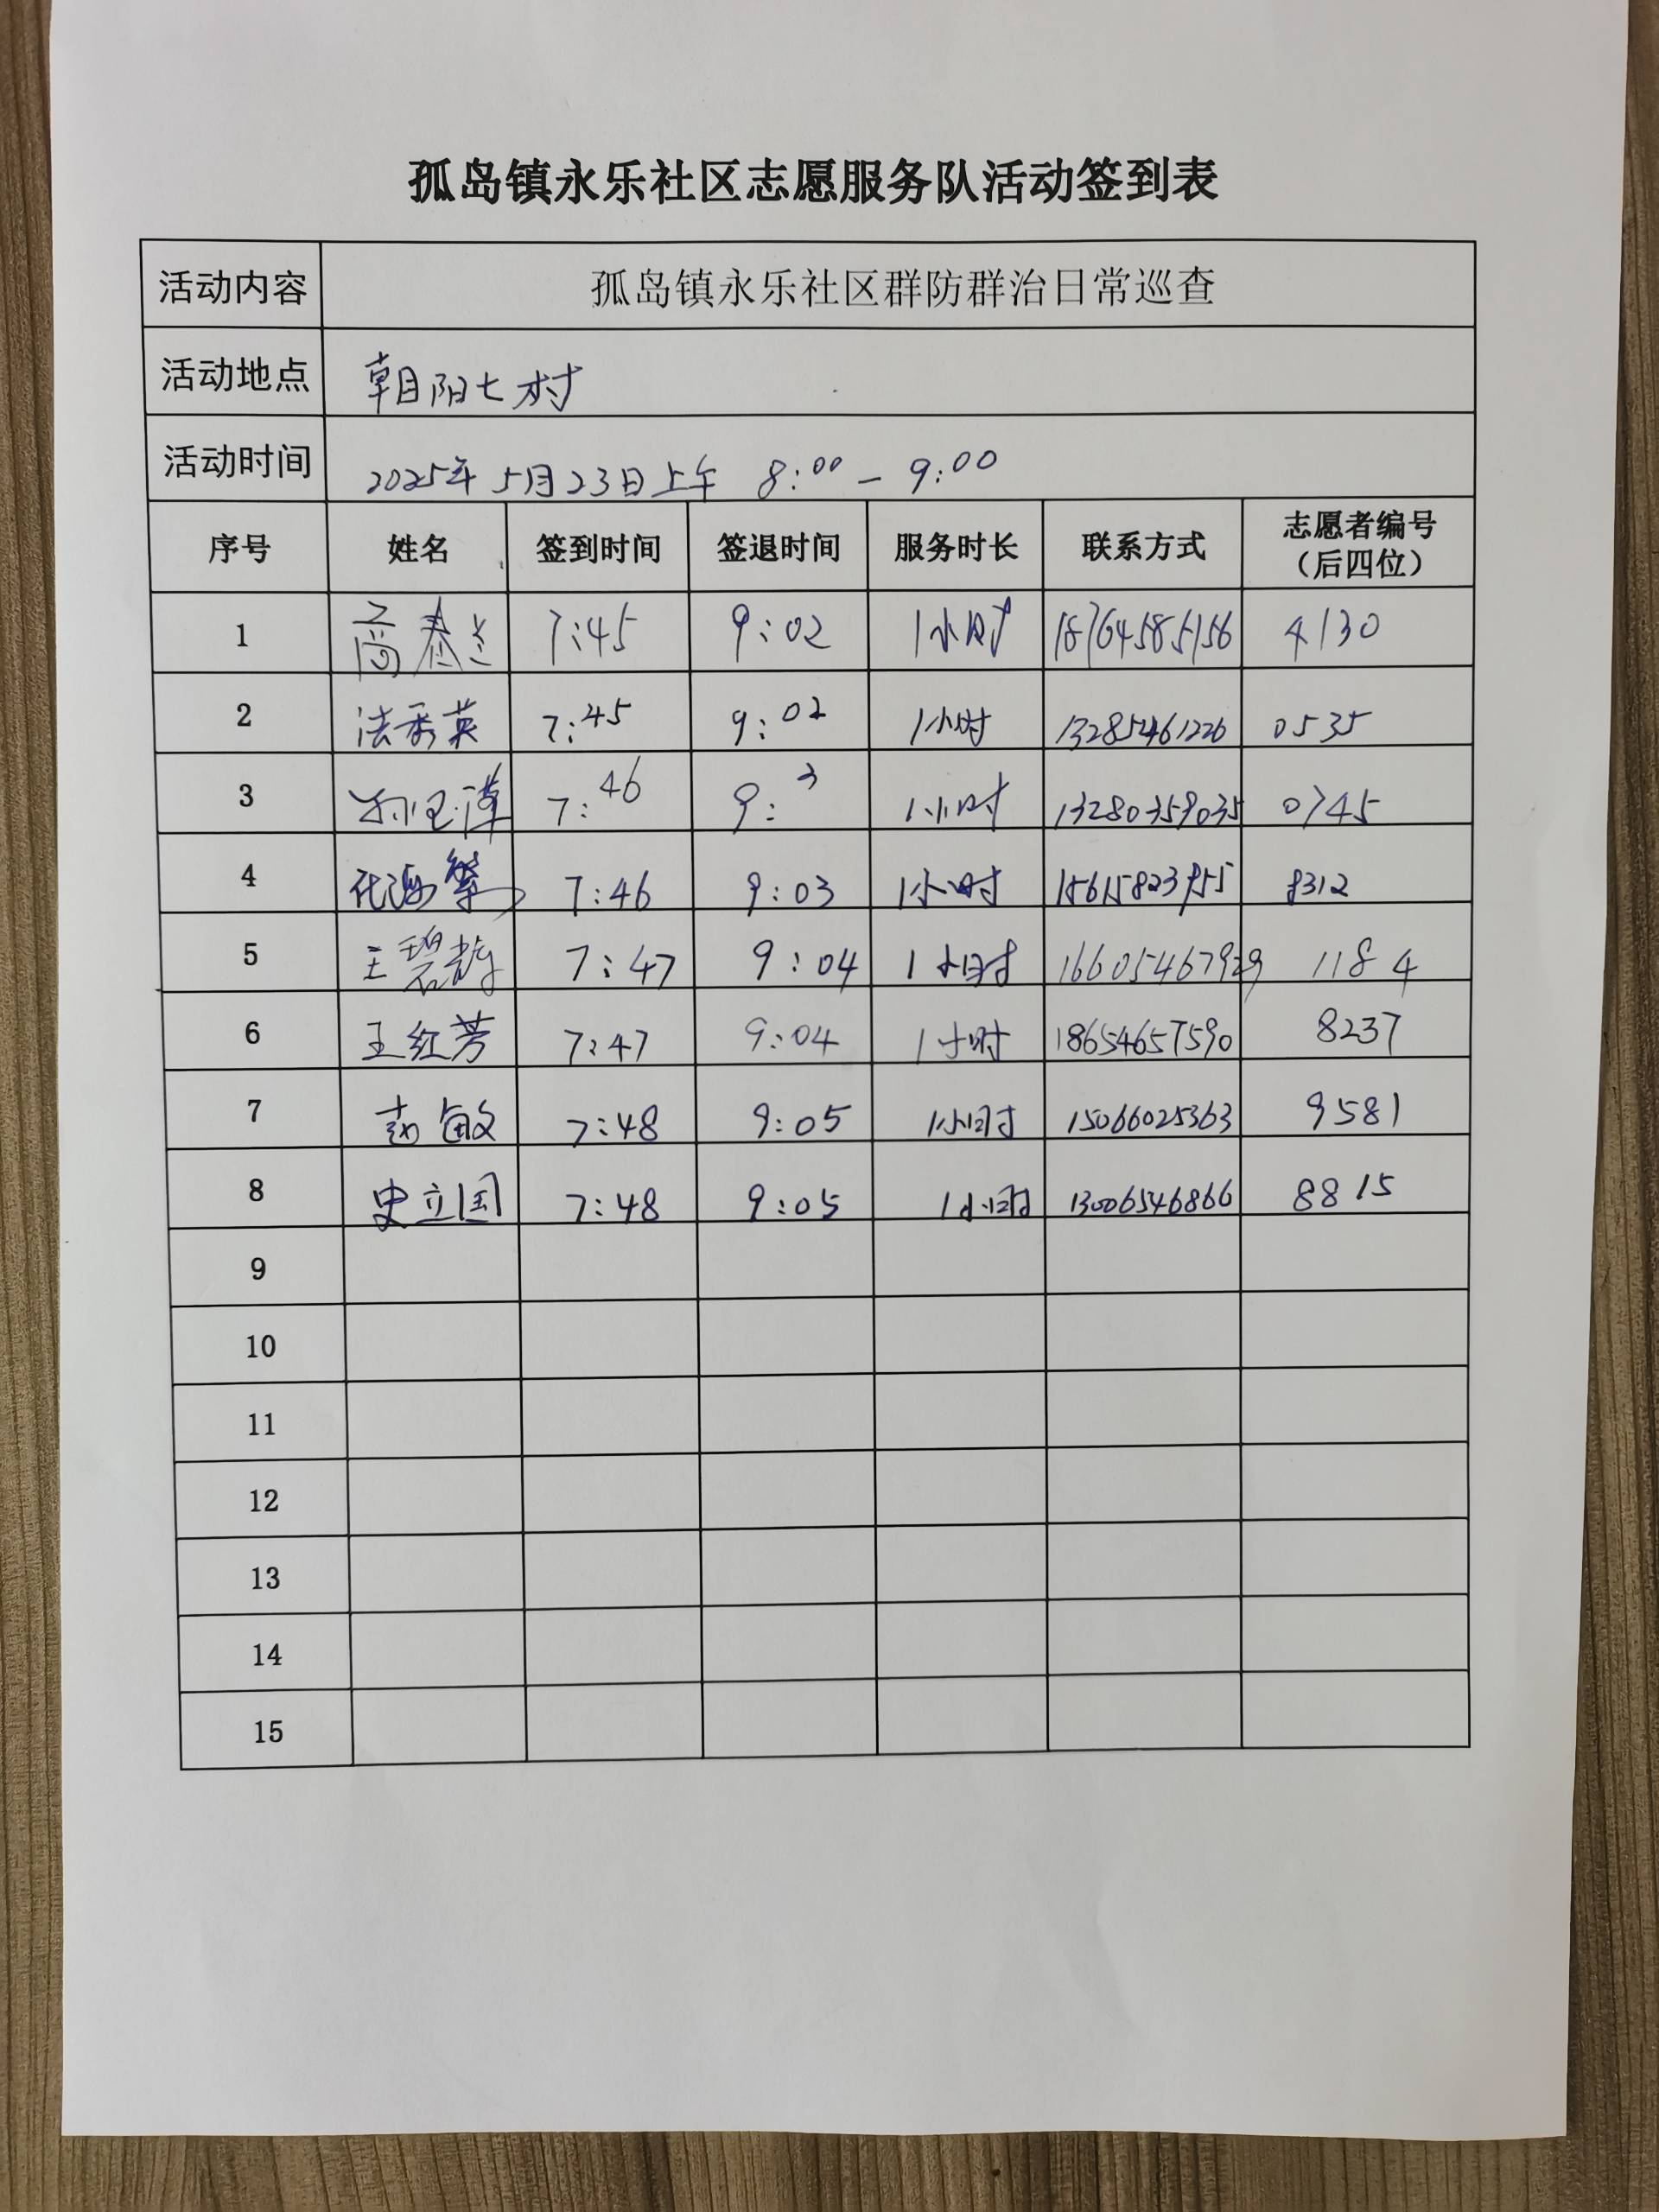 孤岛镇永乐社区志愿服务队活动签到表
活动内容 孤岛镇永乐社区群防群治日常巡查
活动地点 朝阳七村
活动时间 2025年5月23日上午 8:00-9:00
序号 姓名 签到时间 签退时间 服务时长 联系方式 志愿者编号
(后四位)
1 7:45 9:02 1小时 18764585156 4130
2 法秀英 7:45 9:02 1小时 13285461226 0535
3 7:46 9:3 1小时 13280359035 0745
4 7:46 9:03 1小时 8312
5 7:47 9:04 1小时 1184
6 王红芳 7:47 9:04 1小时 18654657590 8237
7 敏 7:48 9:05 1小时 15066025363 9581
8 史立国 7:48 9:05 1小时 13006546866 8815
9
10
11
12
13
14
15